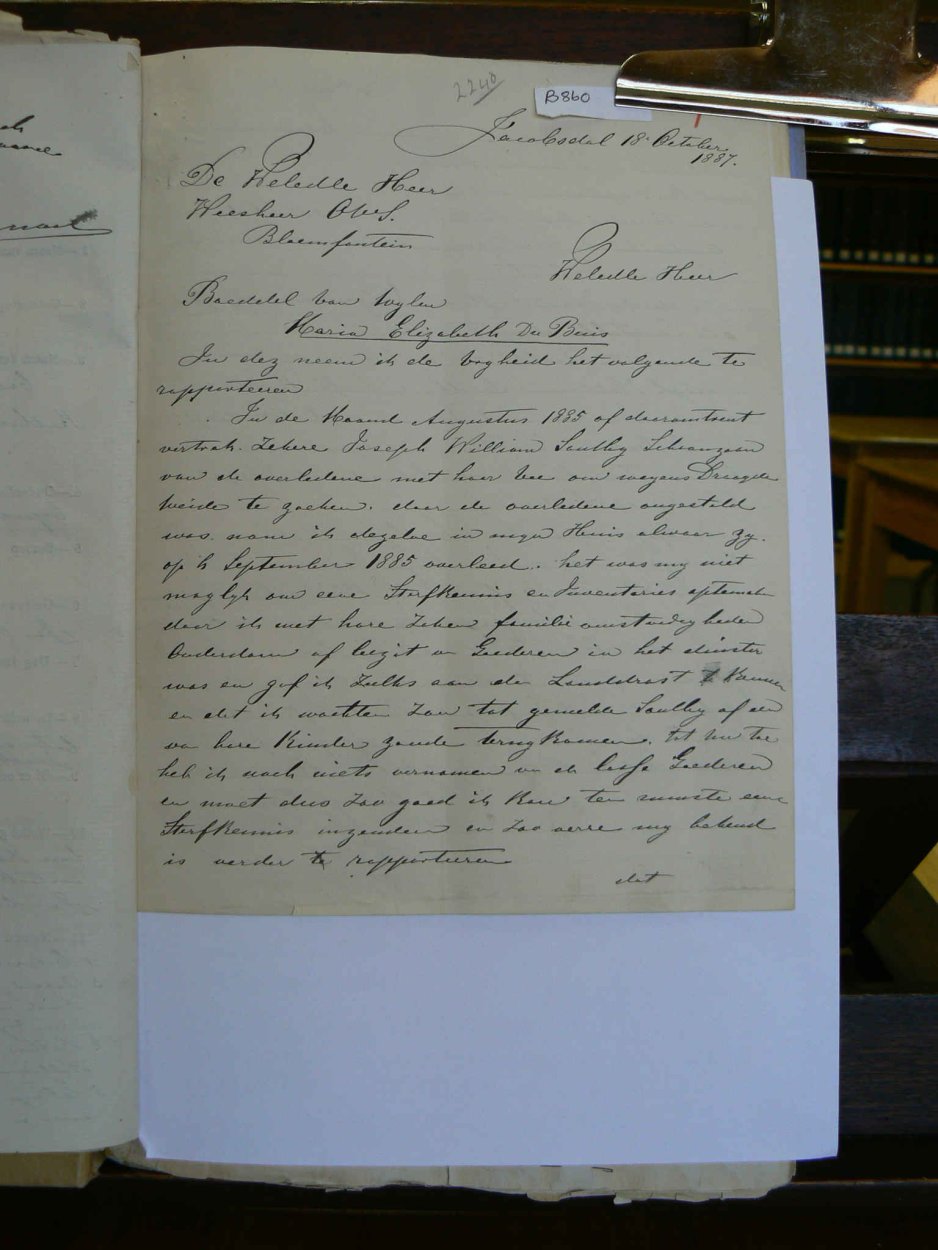 2240
B860
Jacobsdal 18 October
1887.
De Weledle Heer
Weesheer OVS.
Bloemfontein
Weledle Heer
Boedel van wylen
Maria Elizabeth Du Buis
In dez neem ik de vryheid het volgende te
rapporteeren
In de Maand Augustus 1885 of daaromtrent
vertrok Zekere Joseph William Southy Schoonzoon
van de overledene met haar vee om wegens Droogte
Weide te zoeken. daar de overledene ongesteld
was nam ik dezelve in myn Huis alwaar zy
op September 1885 overleed. het was my niet
moglyk om eene Sterfkennis en Inventaris optemaken
daar ik met hare Zaken familie omstandigheden
Ouderdom of bezit van Goederen in het minste
was en gaf ik Zulks aan den Landdrost te Kennen
en dat ik wachten Zou tot gemelde Southy of een
van hare Kinder zoude terugkomen. tot nu toe
heb ik noch niets vernomen van de Goederen
en moet dus Zoo goed ik kan ten minste eene
Sterfkennis inzenden en Zoo verre my bekend
is verder te rapporteeren
dat